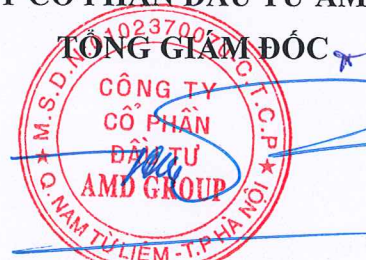 CỔ PHẦN ĐẦU TƯ AM
TỔNG GIÁM ĐỐC
M.S.D.N: 010237007 C.T.C.P
CÔNG TY
CỔ PHẦN
ĐẦU TƯ
AMD GROUP
Q. NAM TỪ LIÊM - T.P HÀ NỘI